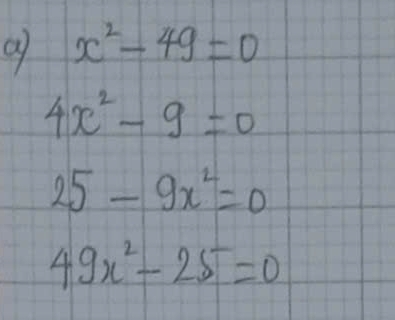 a) x² - 49 = 0
4x² - 9 = 0
25 - 9x² = 0
49x² - 25 = 0